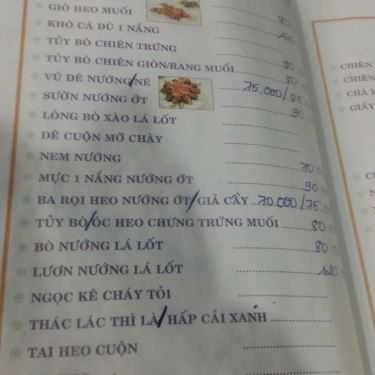 GIÒ HEO MUỐI 80
KHÔ CÁ DÙ 1 NẮNG
TỦY BÒ CHIÊN TRỨNG 80
TỦY BÒ CHIÊN GIÒN/RANG MUỐI 80
VÚ DÊ NƯỚNG/NÉ 75.000/85
SƯỜN NƯỚNG ỚT 90
LÒNG BÒ XÀO LÁ LỐT
DÊ CUỘN MỠ CHÀY
NEM NƯỚNG 70
MỰC 1 NẮNG NƯỚNG ỚT 90
BA RỌI HEO NƯỚNG ỚT/GIẢ CẦY 70.000/75
TỦY BÒ/ÓC HEO CHƯNG TRỨNG MUỐI 80
BÒ NƯỚNG LÁ LỐT 80
LƯƠN NƯỚNG LÁ LỐT 120
NGỌC KÊ CHÁY TỎI
THÁC LÁC THÌ LÀ/HẤP CẢI XANH
TAI HEO CUỘN
CHIÊN
CHIÊN
CHẢ